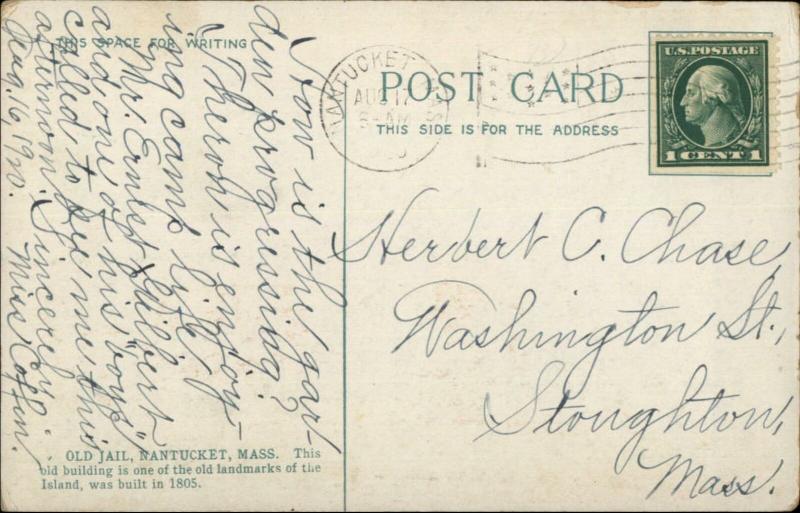 THIS SPACE FOR WRITING
How is the gar-
den progressing?
Theron is enjoy-
ing camp life.
Mr. Ernest Gilbert
and one of his "boys"
called to see me this
afternoon. Sincerely,
Aug. 16, 1920. Miss Coffin.
OLD JAIL, NANTUCKET, MASS. This
old building is one of the old landmarks of the
Island, was built in 1805.
NANTUCKET
AUG 17
AM
POST CARD
THIS SIDE IS FOR THE ADDRESS
U.S. POSTAGE
1 CENT 1
Herbert C. Chase,
Washington St.,
Stoughton,
Mass.